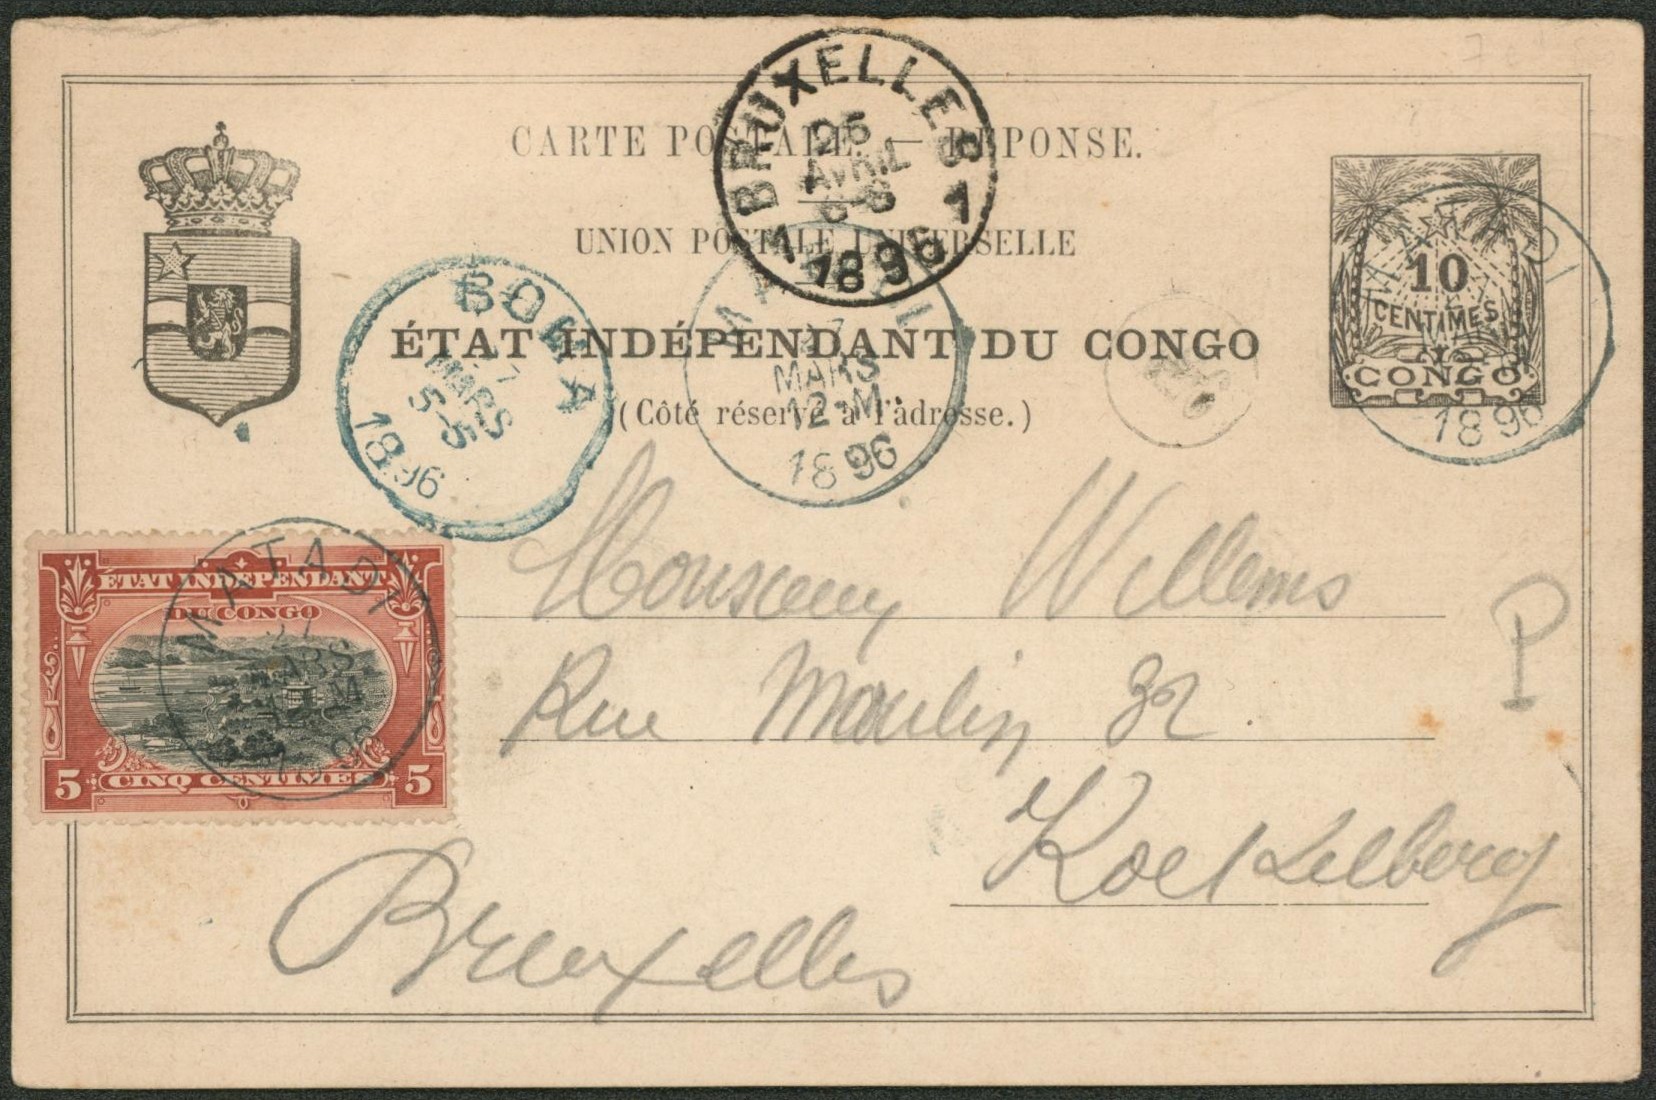 CARTE POSTALE. — RÉPONSE.
UNION POSTALE UNIVERSELLE
ÉTAT INDÉPENDANT DU CONGO
(Côté réservé à l'adresse.)
BRUXELLES 1
25
AVRIL
6-S
1896
10
CENTIMES
CONGO
MATADI
1896
BOMA
27
MARS
5-S
1896
MATADI
27
MARS
12-M
1896
ETAT INDÉPENDANT
DU CONGO
5 CINQ CENTIMES 5
MATADI
MARS
M
1896
Monsieur Willems
Rue Moulin 32
Koekelberg
Bruxelles